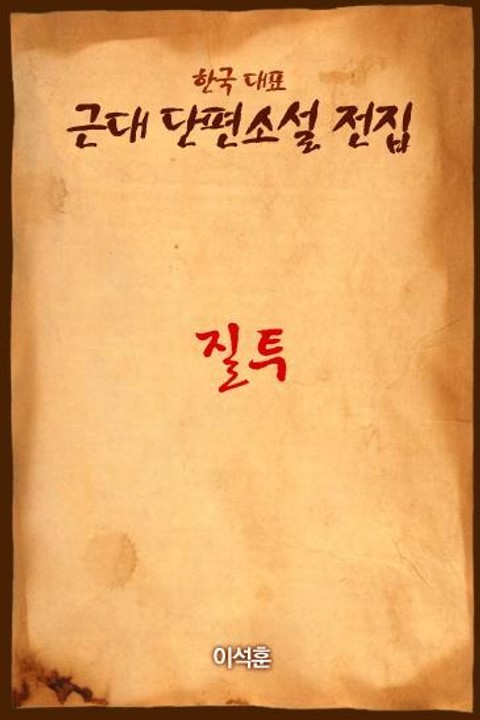 한국 대표
근대 단편소설 전집
질투
이석훈